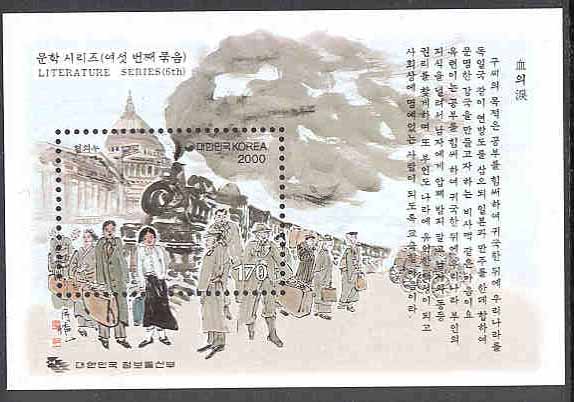 문학 시리즈(여섯 번째 묶음)
LITERATURE SERIES(6th)
혈의누
대한민국 KOREA
2000
170
대한민국 정보통신부
血의淚
구씨의 목적은 공부를 힘써 하여 귀국한 뒤에 우리나라를
독일국 같이 연방도를 삼으되 일본과 만주를 한데 합하여
문명한 강국을 만들고자 하는 비사맥 같은 마음이요
옥련이는 공부를 힘써 하여 귀국한 뒤에 우리나라 부인의
지식을 널려서 남자에게 압제 받지 말고 남자와 동등
권리를 찾게 하며 또 부인도 나라에 유익한 백성이 되고
사회상에 명예 있는 사람이 되도록 교육할 마음이라